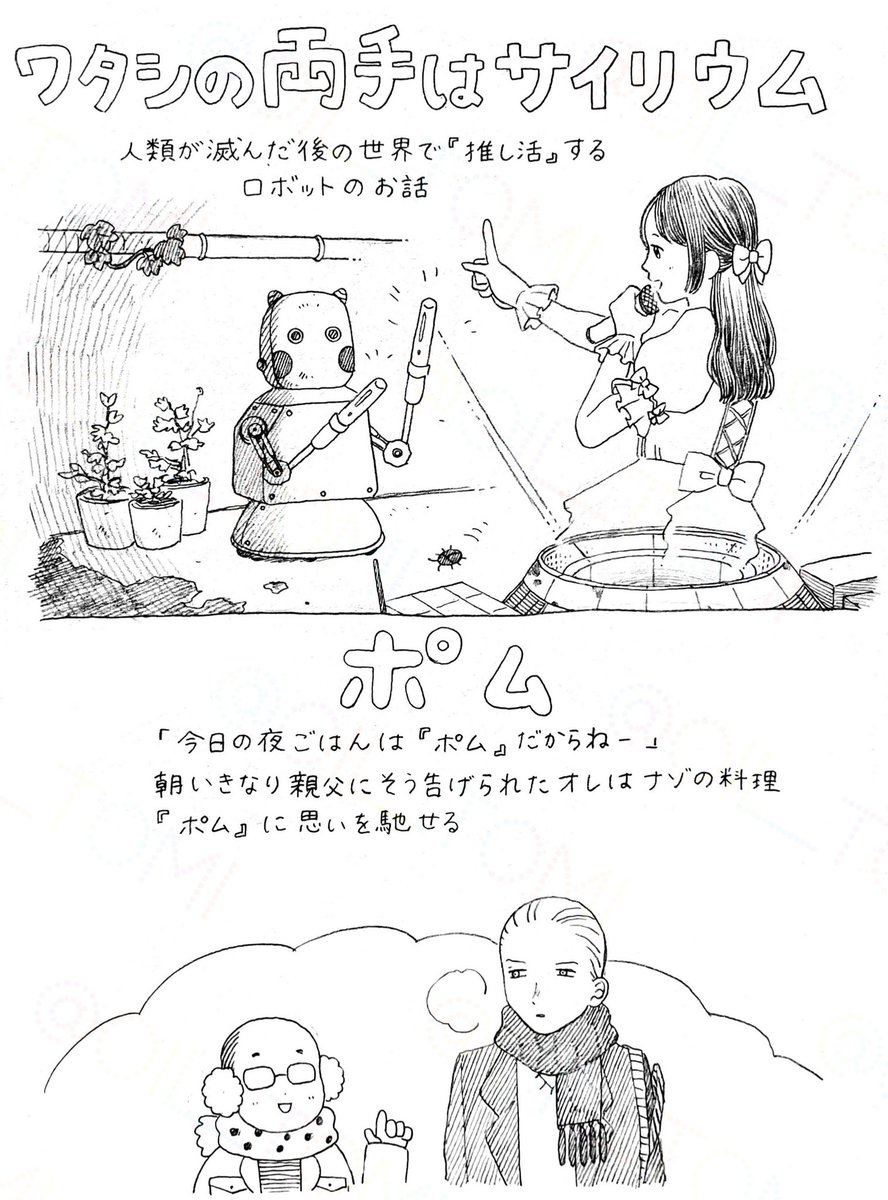 ワタシの両手はサイリウム
人類が滅んだ後の世界で『推し活』する
ロボットのお話
ポム
「今日の夜ごはんは『ポム』だからねー」
朝いきなり親父にそう告げられたオレはナゾの料理
『ポム』に思いを馳せる